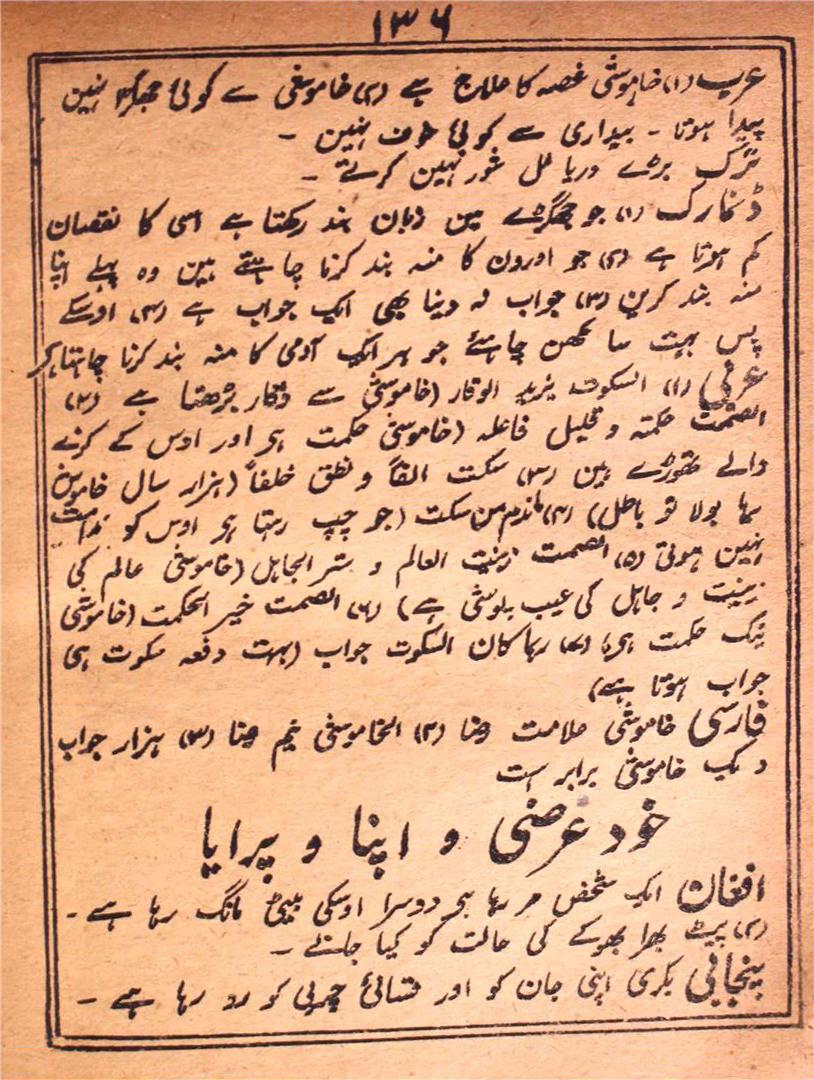 ۱۳۶
عرب (۱) خاموشی غصہ کا علاج ہے (۲) خاموشی سے کوئی جھگڑا نہین
پیدا ہوتا ۔ بیداری سے کوئی خوف نہین ۔
ترک بڑے دریا غل شور نہین کرتے ۔
ڈنمارک (۱) جو جھگڑے مین زبان بند رکھتا ہے اسی کا نقصان
کم ہوتا ہے (۲) جو اورون کا منہ بند کرنا چاہتے ہین وہ پہلے اپنا
منہ بند کرین (۳) جواب نہ دینا بھی ایک جواب ہے (۴) اوسکے
پس بہت سا مکھن چاہئے جو ہر ایک آدمی کا منہ بند کرنا چاہتا ہر
عربی (۱) السکوت یزید الوقار (خاموشی سے وقار بڑھتا ہے (۲)
الصمت حکمتہ و قلیل فاعلہ (خاموشی حکمت ہر اور اوس کے کرنے
والے تھوڑے ہین (۳) سکت الفاً و نطق خلفاً (ہزار سال خاموش
رہا بولا تو باطل) (۴) ماندم من سکت (جو چپ رہتا ہر اوس کو ندامت
نہین ہوتی (۵) الصمت زینت العالم و ستر الجاہل (خاموشی عالم کی
زینت و جاہل کی عیب پوشی ہے) (۶) الصمت خیر الحکمت (خاموشی
نیک حکمت ہر) (۷) ربما کان السکوت جواب (بہت دفعہ سکوت ہی
جواب ہوتا ہے)
فارسی خاموشی علامت رضا (۲) الخاموشی نیم رضا (۳) ہزار جواب
و یک خاموشی برابر است
خود غرضی و اپنا و پرایا
افغان ایک شخص مر رہا ہر دوسرا اوسکی بیٹی مانگ رہا ہے ۔
(۲) پیٹ بھرا بھوکے کی حالت کو کیا جانے ۔
پنجابی بکری اپنی جان کو اور قسائی چربی کو رو رہا ہے ۔